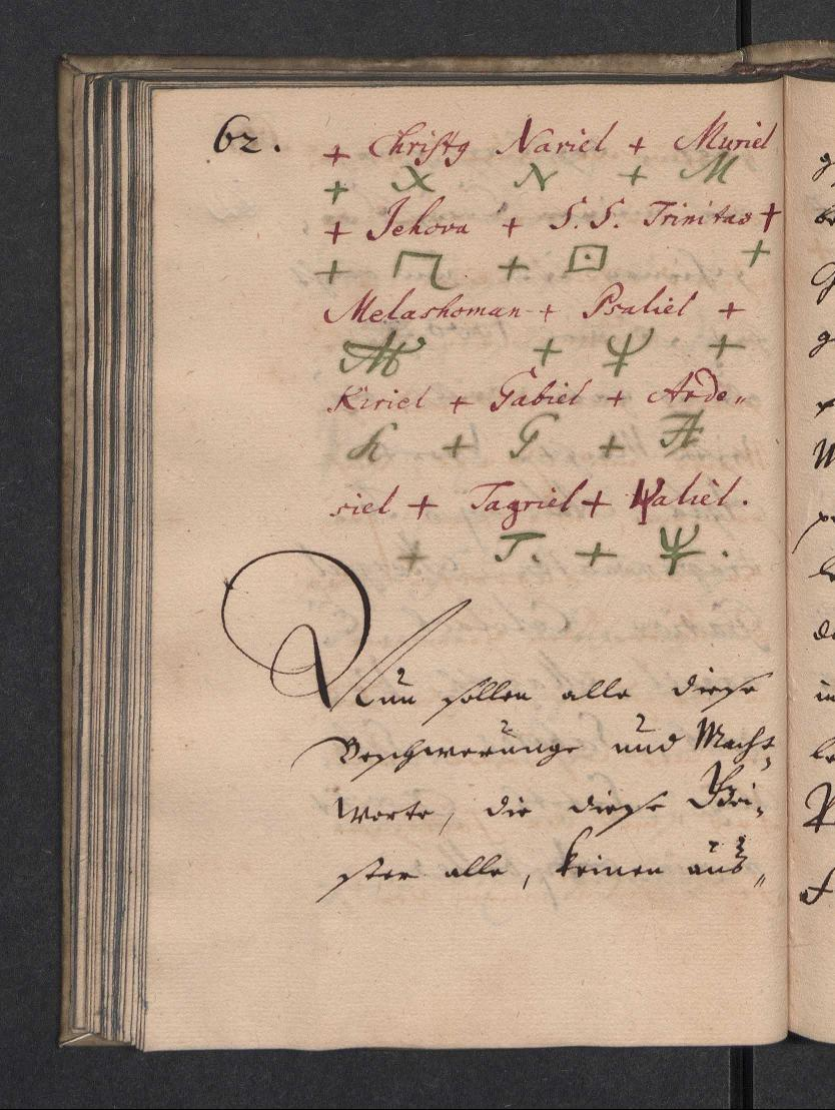 62. + Christꝰ Nariel + Muriel
+ X N + M
+ Jehova + S.S. Trinitas +
+ + +
Melashoman + Psaliel +
M + Ψ +
Kiriel + Gabiel + Arde„
K + G + A
siel + Tagriel + Ψaliel.
+ T. + Ψ.
Nun sollen alle diese
Beschwerunge und Macht-
Worte, die diese Gei-
ster alle, keinen aus„